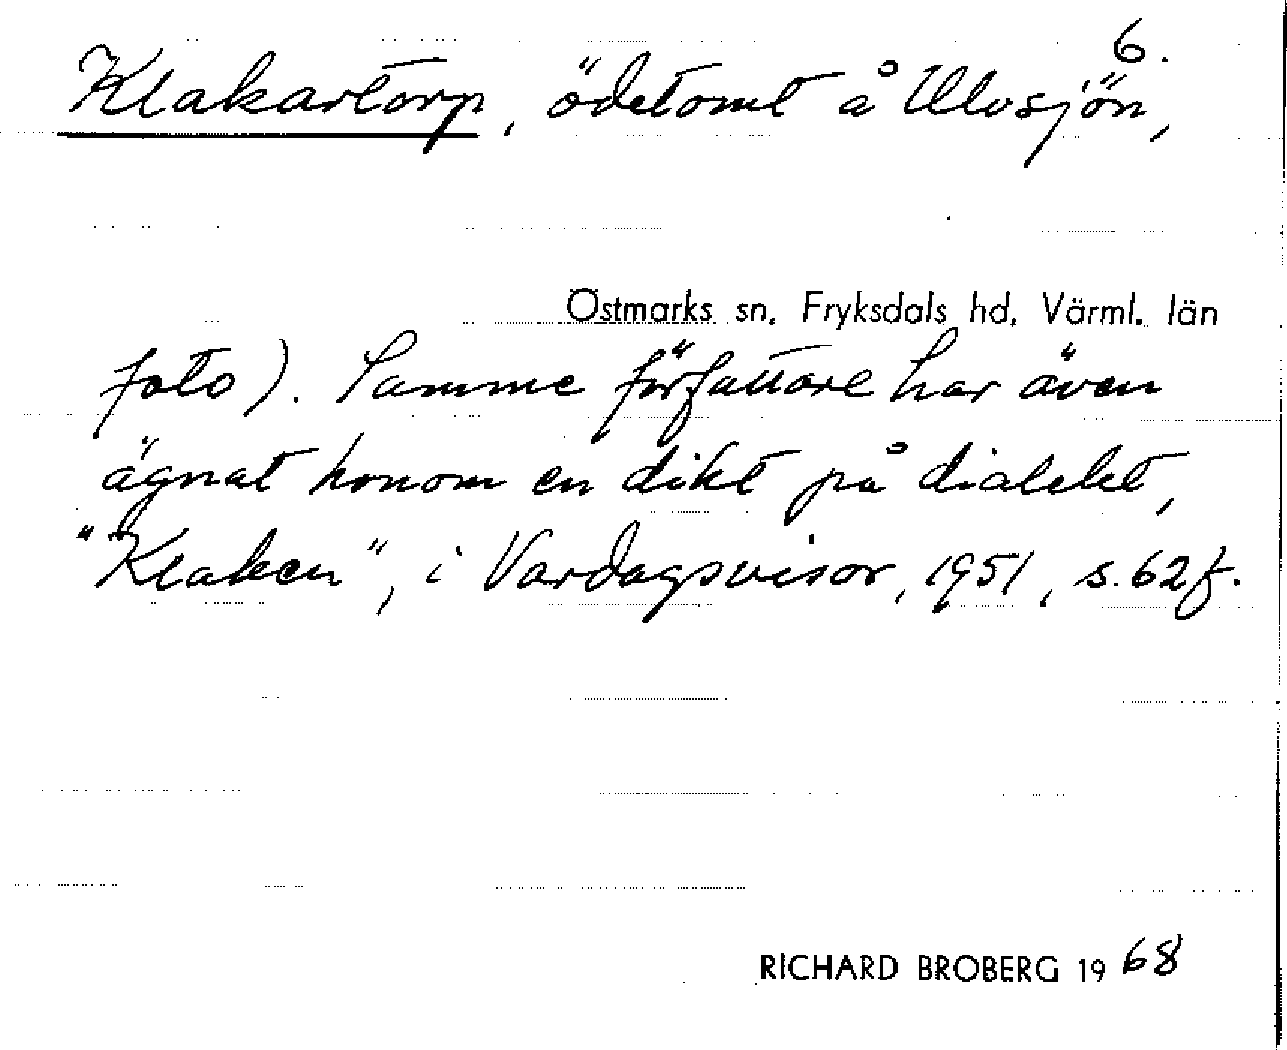 6.
Klakartorp, ödetomt å Ulvsjön,
Östmarks sn. Fryksdals hd. Värml. län
foto). Samme författare har även
ägnat honom en dikt på dialekt,
"Klaken", i Vardagsvisor, 1951, s. 62 f.
RICHARD BROBERG 1968